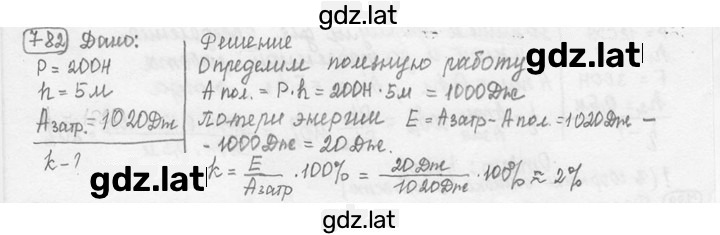 gdz.lat
782 Дано:
P = 200Н
h = 5м
Aзатр. = 1020Дж
k - ?
Решение
Определим полезную работу
Aпол. = P·h = 200Н·5м = 1000Дж
Потери энергии E = Aзатр - Aпол. = 1020Дж -
- 1000Дж = 20Дж.
k = E/Aзатр · 100% = 20Дж/1020Дж · 100% ≈ 2%
gdz.lat
gdz.lat
gdz.lat
gdz.lat